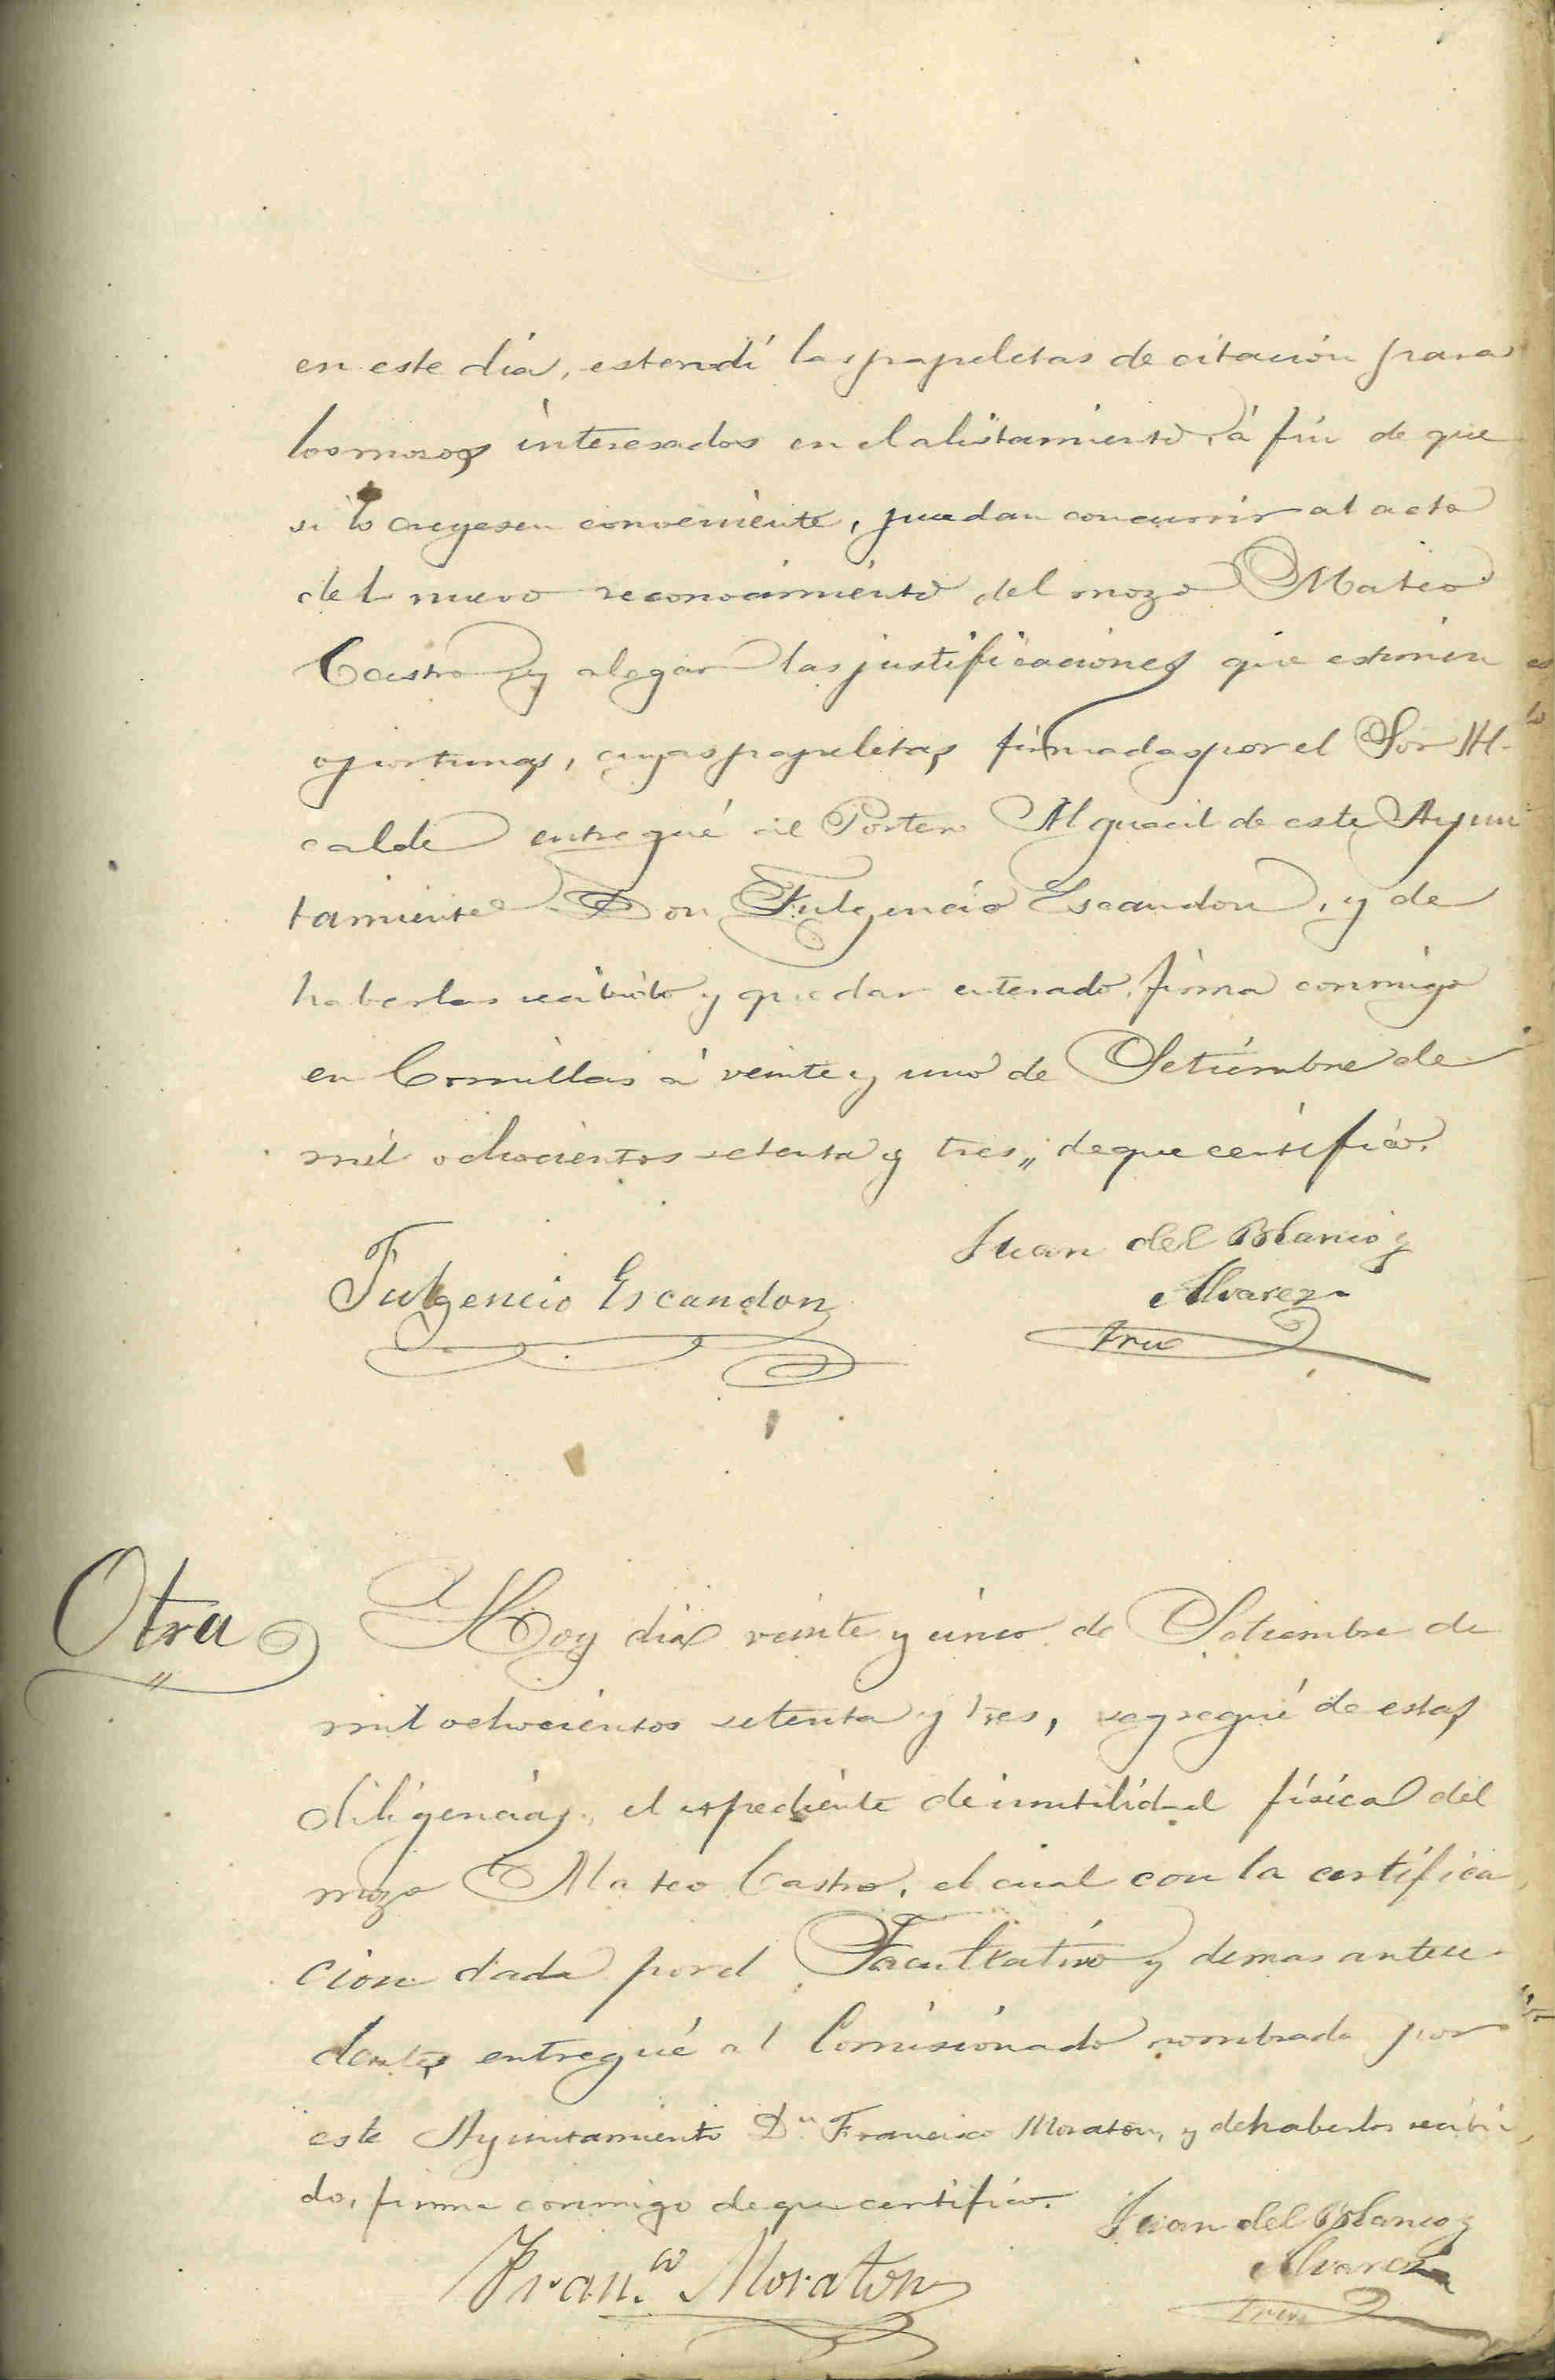 en este día, estendí las papeletas de citación para
los mozos interesados en el alistamiento, á fin de que
si lo creyesen conveniente, puedan concurrir al acto
del nuevo reconocimiento del mozo Mateo
Castro y alegar las justificaciones que estimen
oportunas, cuyas papeletas, firmadas por el Sor Al-
calde entregué al Portero Alguacil de este Ayun
tamiento Don Fulgencio Escandon, y de
haberlas recibido y quedar enterado, firma conmigo
en Comillas á veinte y uno de Setiembre de
mil ochocientos setenta y tres,, de que certifico.
Juan del Blanco y
Fulgencio Escandon
Alvarez
Srio
Otra
Hoy día veinte y cinco de Setiembre de
mil ochocientos setenta y tres, segregué de estas
diligencias, el espediente de inutilidad física del
mozo Mateo Castro, el cual con la certifica
cion dada por el Facultativo y demas antece-
dentes entregué al Comisionado nombrado por
este Ayuntamiento Dn Francisco Moraton, y de haberlos recibi
do, firma conmigo de que certifico.
Juan del Blanco y
Alvarez
Fran.co Moraton